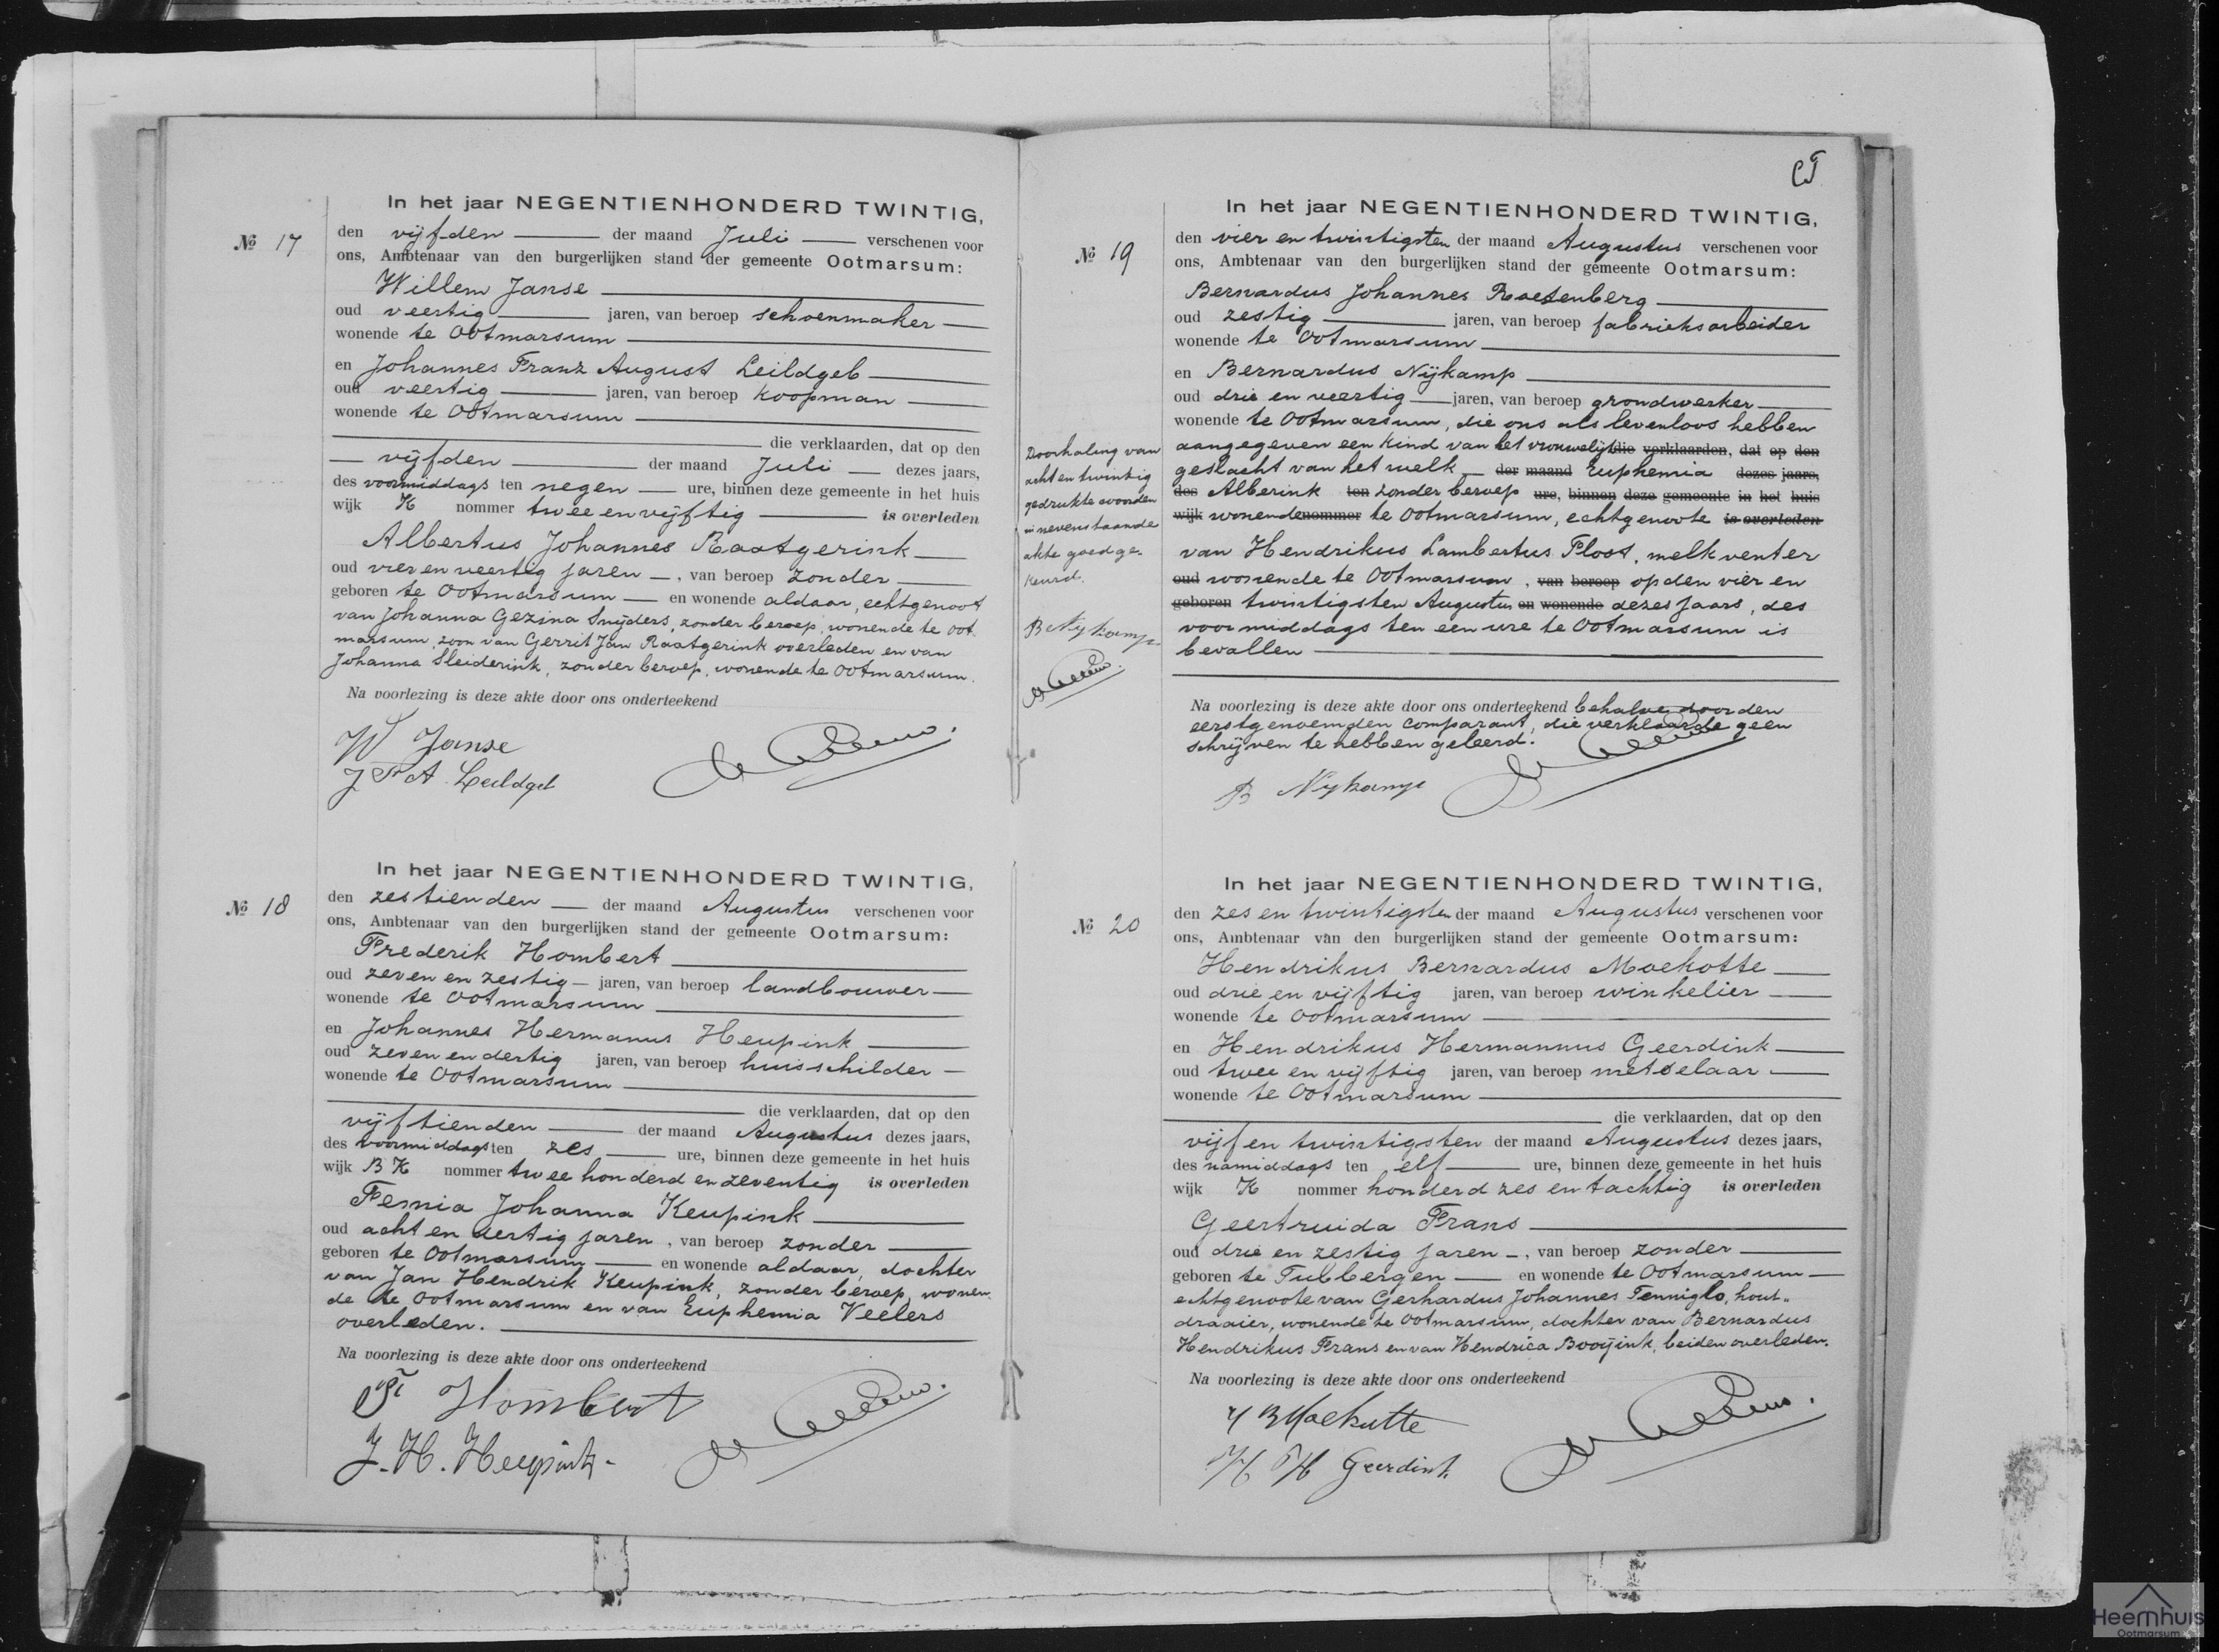 In het jaar NEGENTIENHONDERD TWINTIG,
№ 17
den vijfden der maand Juli verschenen voor
ons, Ambtenaar van den burgerlijken stand der gemeente Ootmarsum:
Willem Janse
oud veertig jaren, van beroep schoenmaker
wonende te Ootmarsum
en Johannes Franz August Leildgeb
oud veertig jaren, van beroep koopman
wonende te Ootmarsum
die verklaarden, dat op den
vijfden der maand Juli dezes jaars,
des voormiddags ten negen ure, binnen deze gemeente in het huis
wijk K nommer twee en vijftig is overleden
Albertus Johannes Raatgerink
oud vier en veertig jaren, van beroep zonder
geboren te Ootmarsum en wonende aldaar, echtgenoot
van Johanna Gezina Snijders, zonder beroep, wonende te Oot
marsum, zoon van Gerrit Jan Raatgerink overleden en van
Johanna Sleiderink, zonder beroep, wonende te Ootmarsum.
Na voorlezing is deze akte door ons onderteekend
W Janse
J F A Leildgeb
In het jaar NEGENTIENHONDERD TWINTIG,
№ 18
den zestienden der maand Augustus verschenen voor
ons, Ambtenaar van den burgerlijken stand der gemeente Ootmarsum:
Frederik Hombert
oud zeven en zestig jaren, van beroep landbouwer
wonende te Ootmarsum
en Johannes Hermanus Heupink
oud zeven en dertig jaren, van beroep huisschilder
wonende te Ootmarsum
die verklaarden, dat op den
vijftienden der maand Augustus dezes jaars,
des voormiddags ten zes ure, binnen deze gemeente in het huis
wijk B K nommer twee honderd en zeventig is overleden
Femia Johanna Keupink
oud acht en dertig jaren, van beroep zonder
geboren te Ootmarsum en wonende aldaar, dochter
van Jan Hendrik Keupink, zonder beroep, wonen
de te Ootmarsum en van Euphemia Veelers
overleden.
Na voorlezing is deze akte door ons onderteekend
Hombert
J. H. Heupink
In het jaar NEGENTIENHONDERD TWINTIG,
№ 19
den vier en twintigsten der maand Augustus verschenen voor
ons, Ambtenaar van den burgerlijken stand der gemeente Ootmarsum:
Bernardus Johannes Roesenberg
oud zestig jaren, van beroep fabrieksarbeider
wonende te Ootmarsum
en Bernardus Nijkamp
oud drie en veertig jaren, van beroep grondwerker
wonende te Ootmarsum, die ons als levenloos hebben
aangegeven een kind van het vrouwelijk die verklaarden, dat op den
geslacht van het welk der maand Euphemia dezes jaars,
des Alberink ten zonder beroep ure, binnen deze gemeente in het huis
wijk wonende nommer te Ootmarsum, echtgenoote is overleden
van Hendrikus Lambertus Floot, melkventer
oud wonende te Ootmarsum, van beroep op den vier en
geboren twintigsten Augustus en wonende dezes jaars, des
voormiddags ten een ure te Ootmarsum is
bevallen
Na voorlezing is deze akte door ons onderteekend behalve door den
eerstgenoemden comparant, die verklaarde geen
schrijven te hebben geleerd.
B Nijkamp
Doorhaling van
acht en twintig
gedrukte woorden
in nevenstaande
akte goedge-
keurd.
B Nijkamp
In het jaar NEGENTIENHONDERD TWINTIG,
№ 20
den zes en twintigsten der maand Augustus verschenen voor
ons, Ambtenaar van den burgerlijken stand der gemeente Ootmarsum:
Hendrikus Bernardus Moekotte
oud drie en vijftig jaren, van beroep winkelier
wonende te Ootmarsum
en Hendrikus Hermannus Geerdink
oud twee en vijftig jaren, van beroep metselaar
wonende te Ootmarsum
die verklaarden, dat op den
vijf en twintigsten der maand Augustus dezes jaars,
des namiddags ten elf ure, binnen deze gemeente in het huis
wijk K nommer honderd zes en tachtig is overleden
Geertruida Frans
oud drie en zestig jaren, van beroep zonder
geboren te Tubbergen en wonende te Ootmarsum
echtgenoote van Gerhardus Johannes Tenniglo, hout-
draaier, wonende te Ootmarsum, dochter van Bernardus
Hendrikus Frans en van Hendrica Booijink, beiden overleden.
Na voorlezing is deze akte door ons onderteekend
H B Moekotte
H H Geerdink
Heemhuis
Ootmarsum